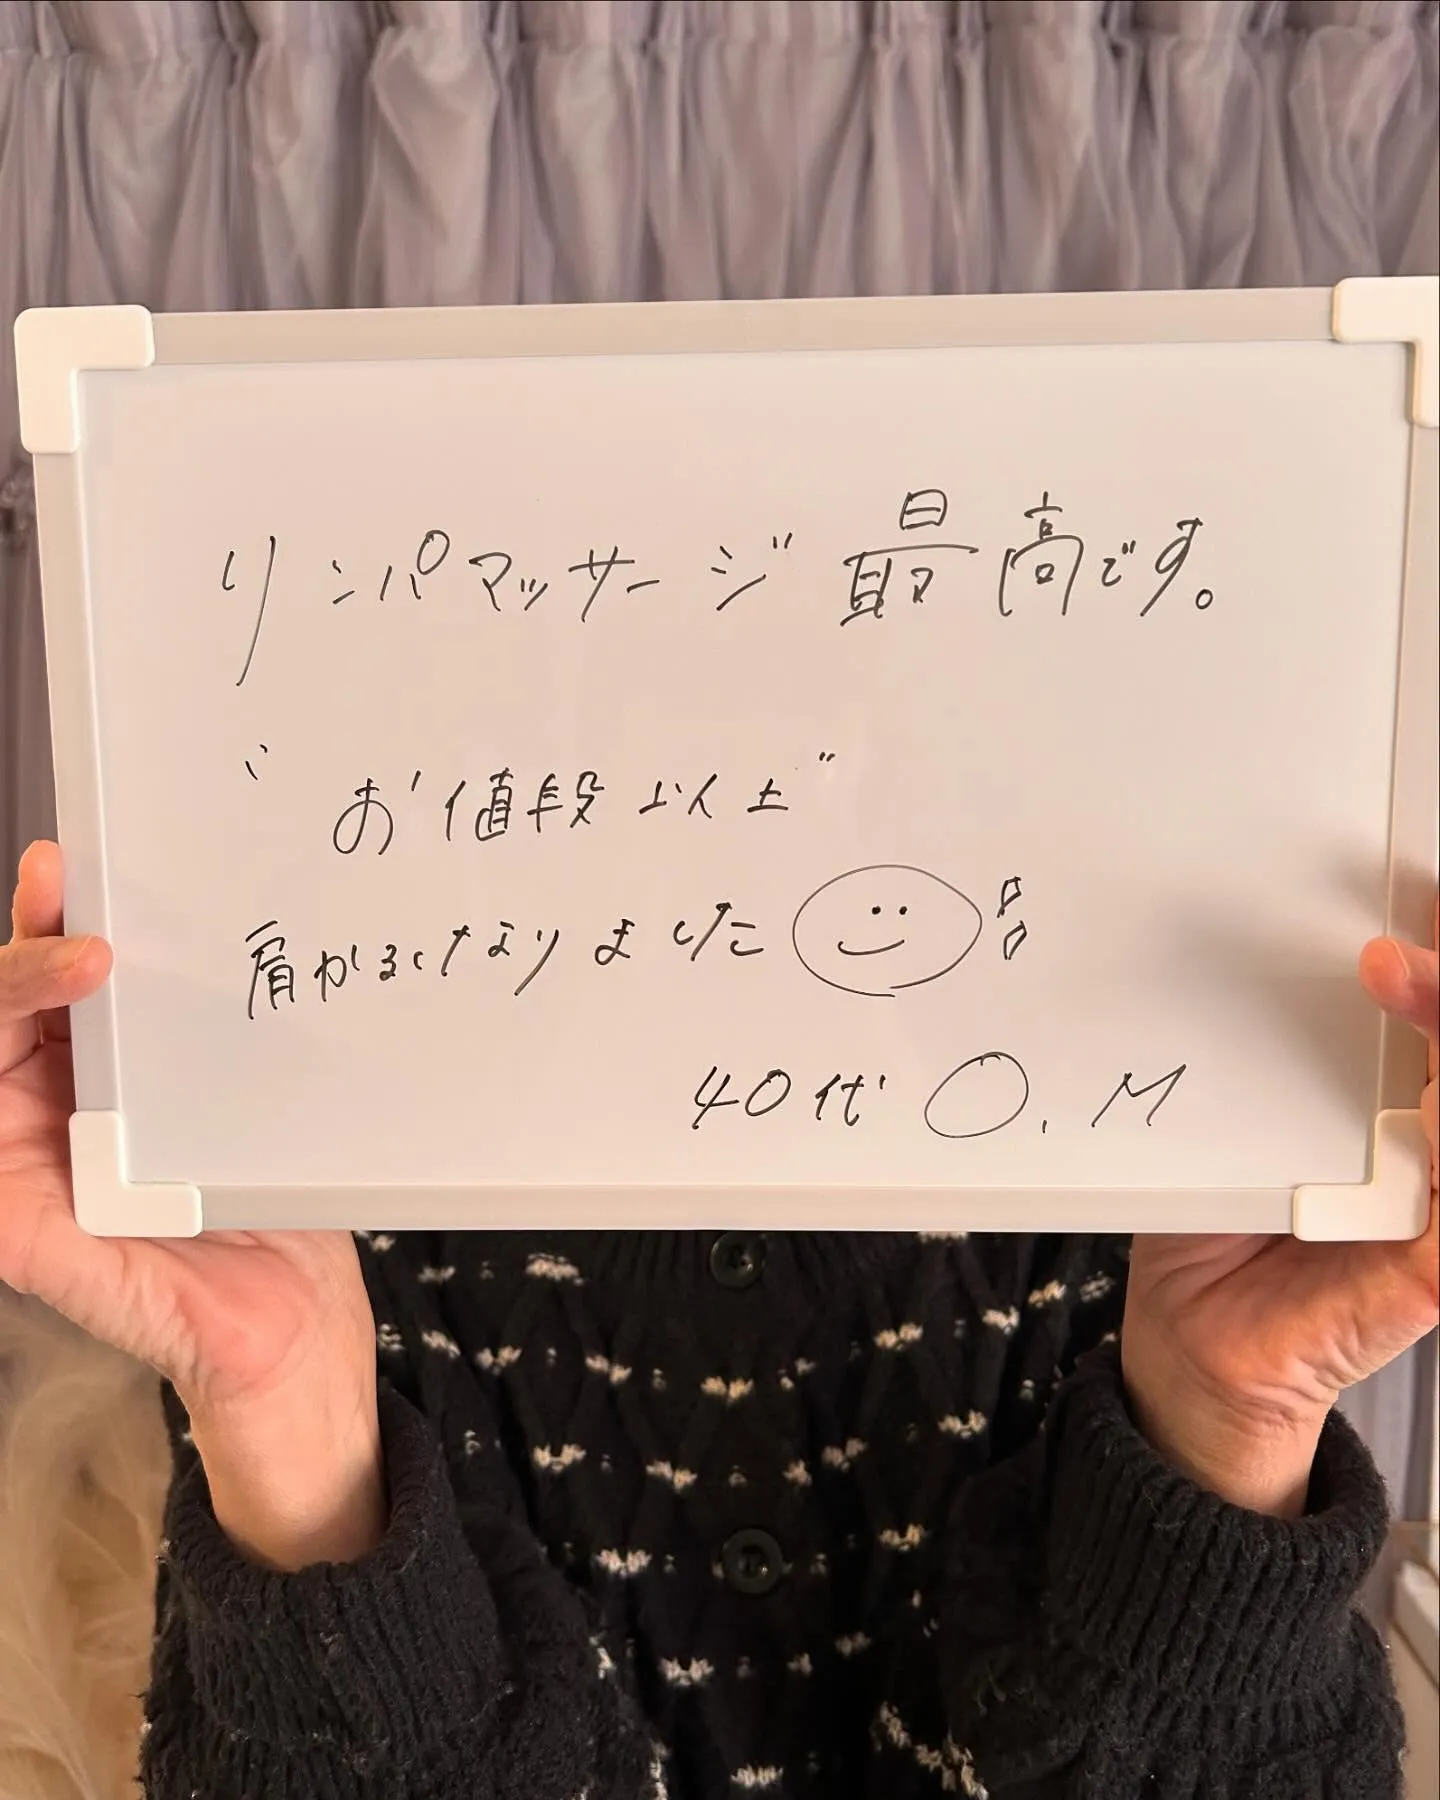 リンパマッサージ 最高です。
“お値段以上”
肩がるけなりました
40代 O.M